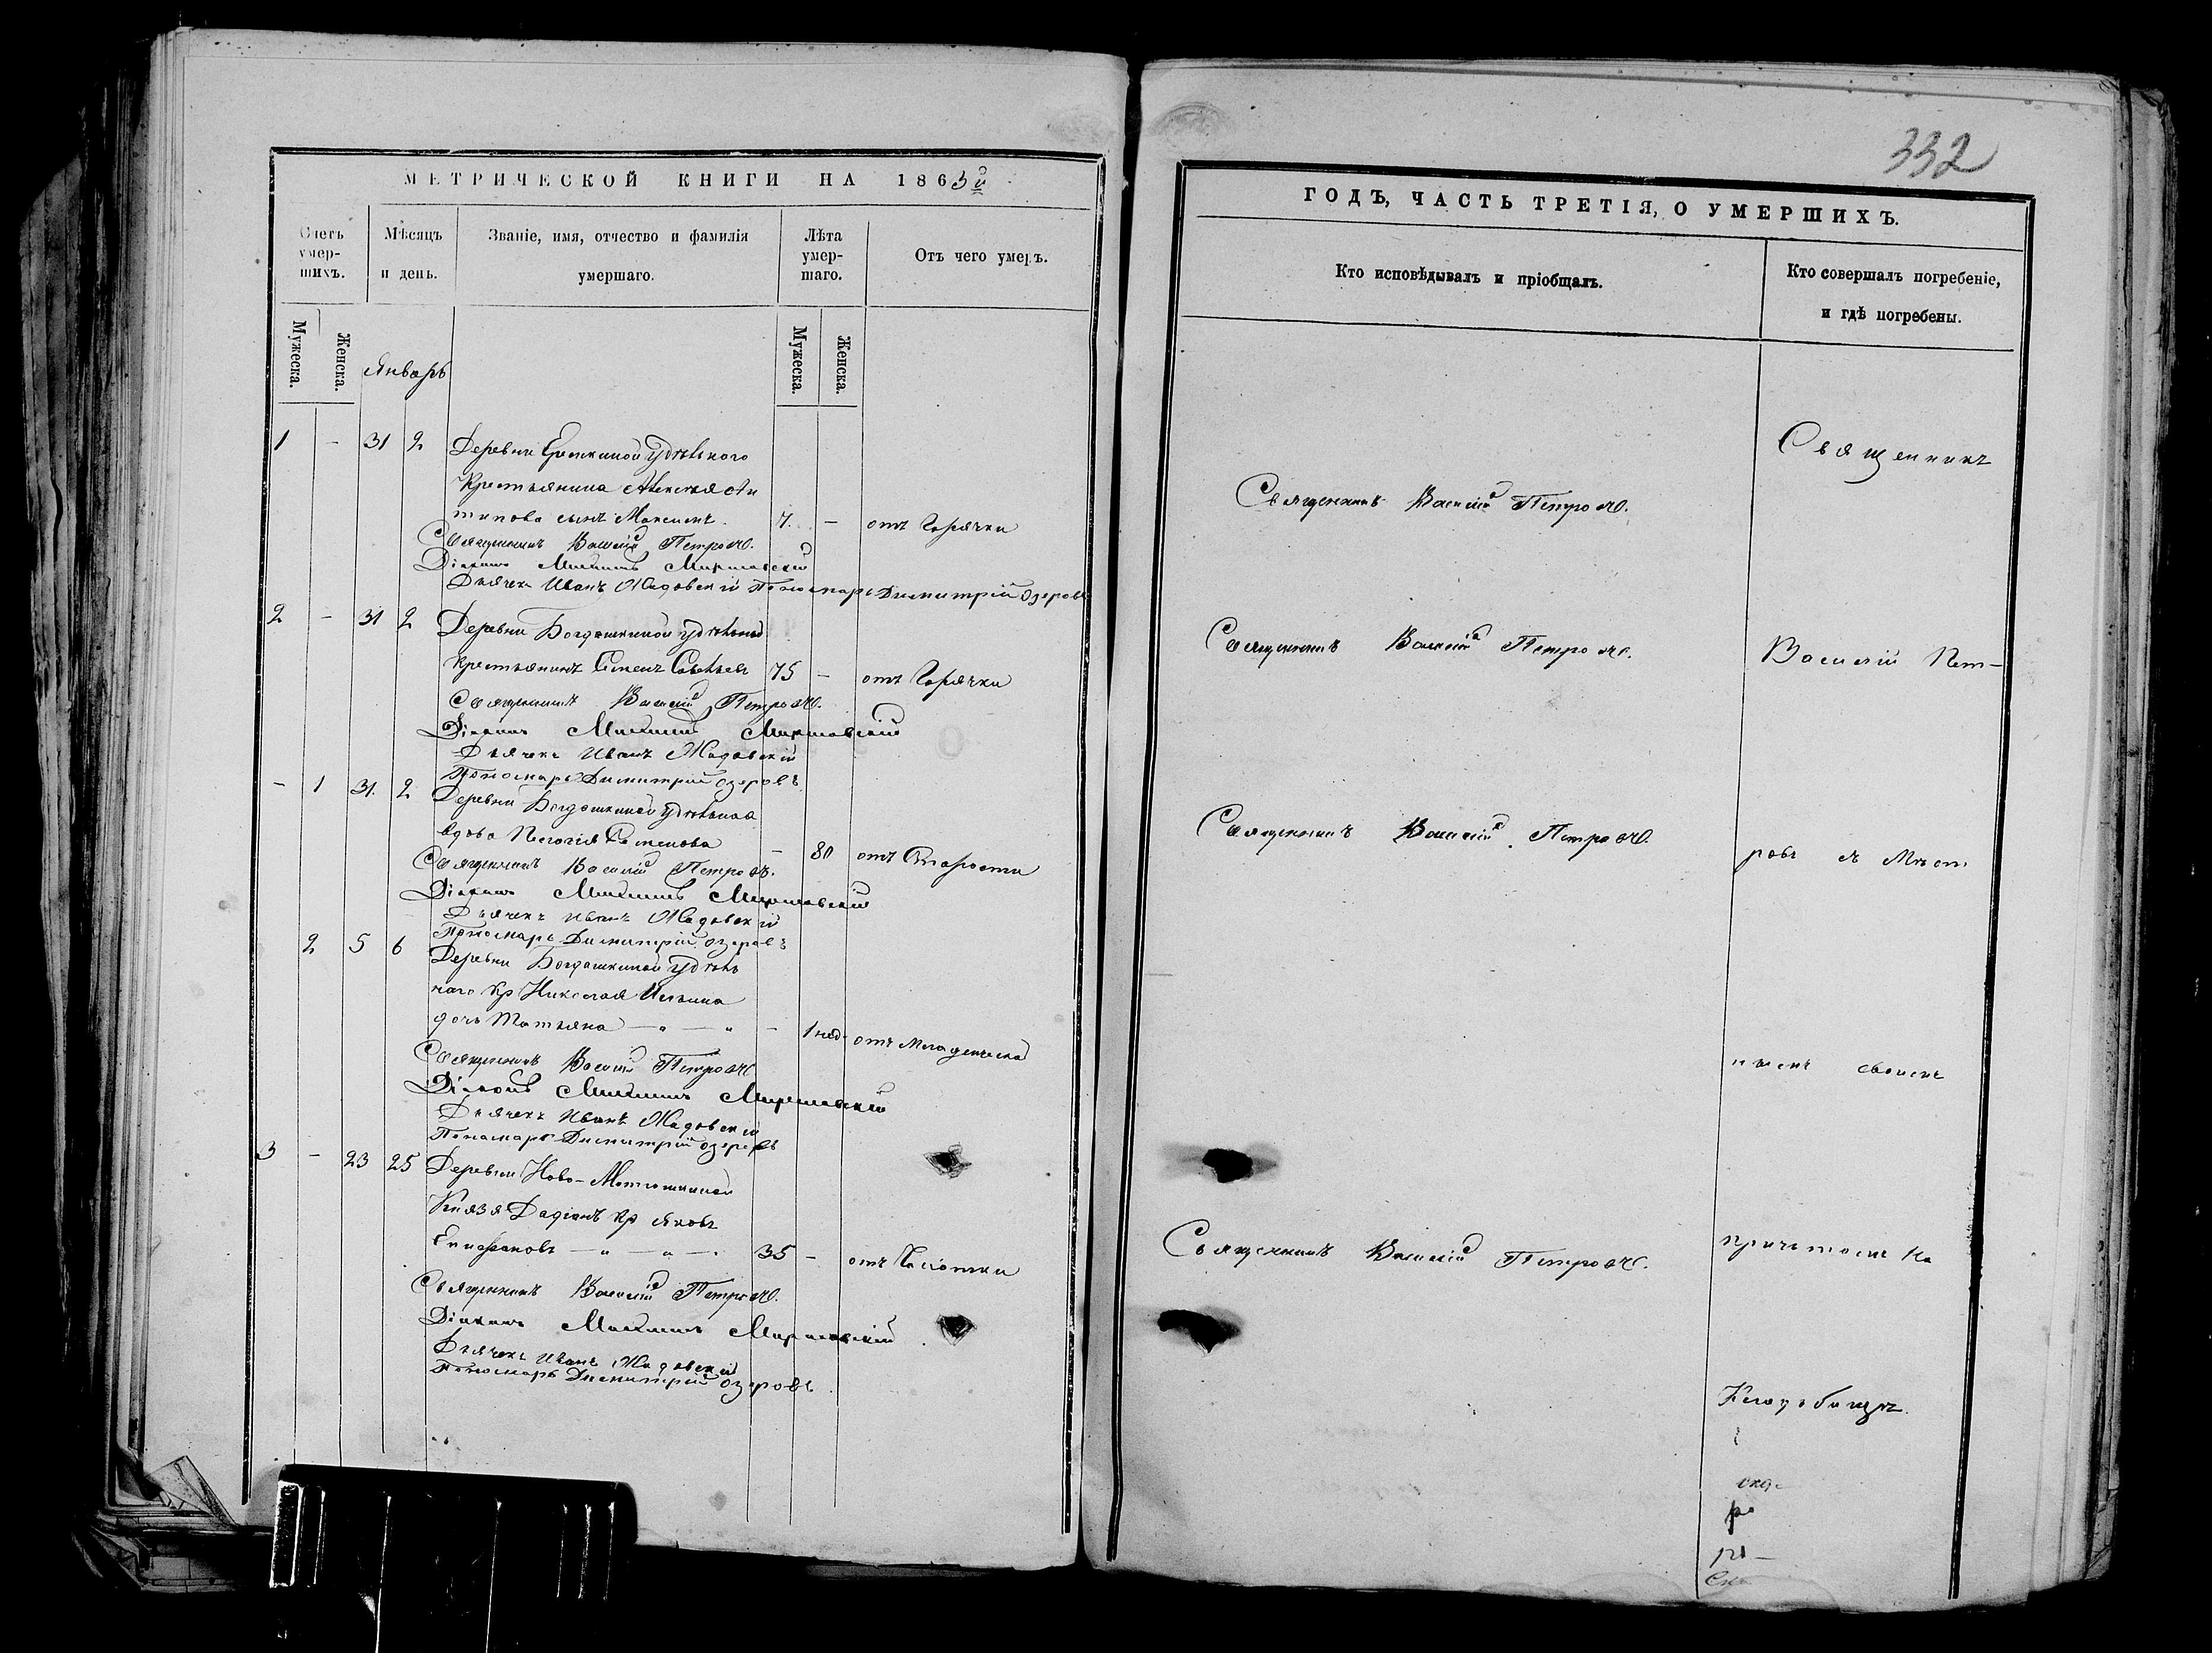 332
МЕТРИЧЕСКОЙ КНИГИ НА 1863й
Счетъ умер-шихъ.
Мѣсяцъ и день.
Званіе, имя, отчество и фамилія умершаго.
Лѣта умер-шаго.
Отъ чего умеръ.
Мужеска.
Женска.
Январь
Мужеска.
Женска.
1 - 31 2 Деревни Удѣльного
Крестьянина Алексѣя Ан
типова сынъ Максимъ. 7. - отъ Горячки
Священникъ Василій Петровъ.
Діаконъ Михаилъ
Дьячекъ Иванъ Жадовскій Пономарь Димитрій Озеровъ
2 - 31 2 Деревни Богдашкиной удѣльный
крестьянинъ Семенъ Савельевъ 75 - отъ Горячки
Священникъ Василій Петровъ.
Діаконъ Михаилъ
Дьячекъ Иванъ Жадовскій
Пономарь Димитрій Озеровъ
- 1 31. 2 Деревни Богдашкиной удѣльная
вдова Пелагія Семенова - 80 отъ Старости
Священникъ Василій Петровъ.
Діаконъ Михаилъ
Дьячекъ Иванъ Жадовскій
Пономарь Димитрій Озеровъ
2 5 6 Деревни Богдашкиной удѣль
наго Кр Николая Ильина
дочь Татьяна - " - " - 1 нед. отъ Младенческой
Священникъ Василій Петровъ
Діаконъ Михаилъ
Дьячекъ Иванъ Жадовскій
Пономарь Димитрій Озеровъ
3 - 23 25 Деревни Ново-Матюшкиной
Князя Дадіанъ Кр Яковъ
Епифановъ - " - " - 35 - отъ Чахотки
Священникъ Василій Петровъ.
Діаконъ Михаилъ
Дьячекъ Иванъ Жадовскій
Пономарь Димитрій Озеровъ
ГОДЪ, ЧАСТЬ ТРЕТІЯ, О УМЕРШИХЪ.
Кто исповѣдывалъ и пріобщалъ.
Кто совершалъ погребеніе, и гдѣ погребены.
Священникъ Василій Петровъ.
Священникъ Василій Петровъ.
Священникъ Василій Петровъ.
Священникъ Василій Петровъ.
Священникъ
Василій Пет-
ровъ съ Мѣст
нымъ своимъ
причтомъ На
Кладбищѣ.